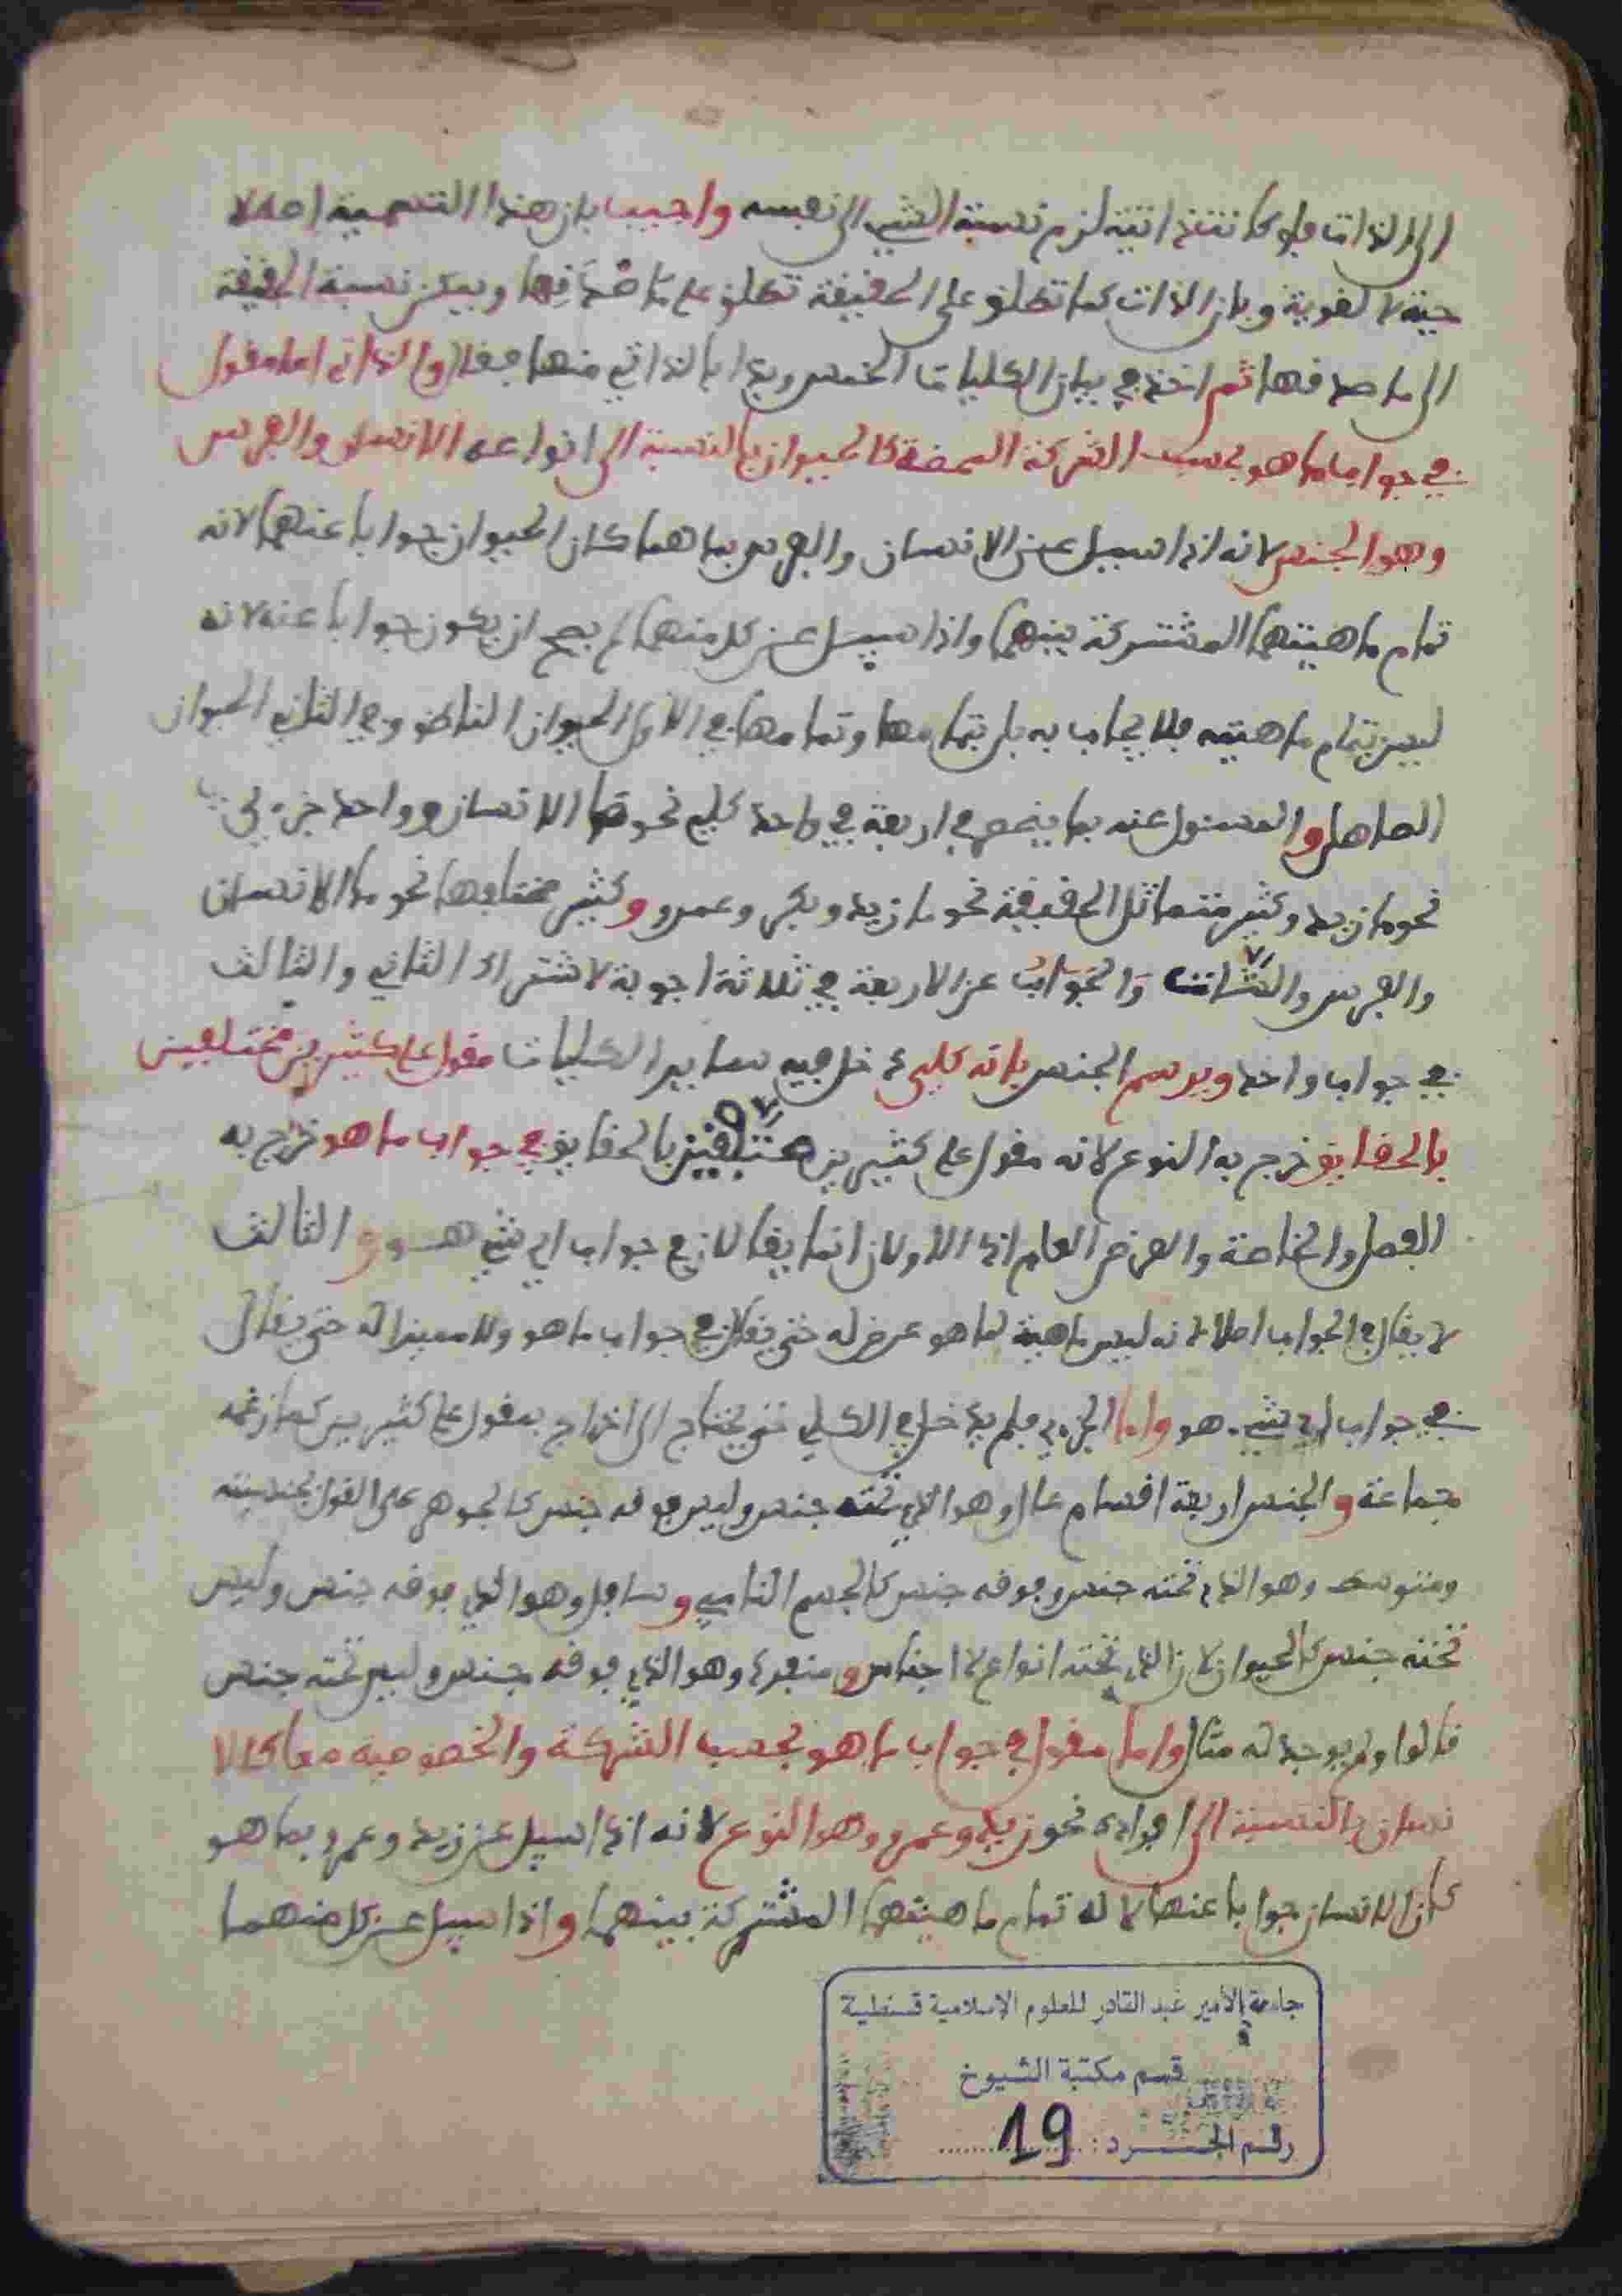 الى الذات فلو كانت ذاتية لزم نسبة الشيء الى نفسه واجيب بان هذا التسمية اصطلا
حية لا لغوية وبان الذات كما تطلق على الحقيقة تطلق على ما صَدَقِها ويمكن نسبة الحقيقة
الى ما صدقها ثم اخذ في بيان الكليات الخمس وبدا بالذاتي منها فقال والذاتي اما مقول
في جواب ما هو بحسب الشركة المحضة كالحيوان بالنسبة الى انواعه الانسان والفرس
وهو الجنس لانه اذا سيل عن الانسان والفرس بما هما كان الحيوان جوابا عنهما لانه
تمام ماهيتهما المشتركة بينهما واذا سيل عن كل منهما لم يصح ان يكون جوابا عنه لانه
ليس بتمام ماهيته فلا يجاب به بل بتمامها وتمامها في الاول الحيوان الناطق وفي الثاني الحيوان
الصاهل والمسئول عنه بما ينحصر في اربعة في واحد كلي نحو ما الانسان وواحد جزءي
نحو ما زيد وكثير متماثل الحقيقة نحو ما زيد وبكر وعمرو وكثير مختلفها نحو ما الانسان
والفرس والشات والجواب عن الاربعة في ثلاثة اجوبة لاشتراك الثاني والثالث
في جواب واحد ويرسم الجنس بانه كلي دخل فيه ساير الكليات مقول على كثيرين مختلفين
بالحقايق خرج به النوع لانه مقول على كثيرين متفقين بالحقايق في جواب ما هو خرج به
الفصل والخاصة والعرض العام اذ الاولان انما يقالان في جواب اي شيء هو والثالث
لا يقال في الجواب اصلا لانه ليس ماهية لما هو عرض له حتى يقال في جواب ما هو ولا مميزا له حتى يقال
في جواب اي شيء هو واما الجزءي فلم يدخل في الكلي حتى يحتاج الى اخراج بمقول على كثيرين كما زعمه
جماعة والجنس اربعة اقسام عال وهو الذي تحته جنس وليس فوقه جنس كالجوهر على القول بجنسيته
ومتوسط وهو الذي تحته جنس وفوقه جنس كالجسم النامي وسافل وهو الذي فوقه جنس وليس
تحته جنس كالحيوان لان الذي تحته انواع لا اجناس ومنفرد وهو الذي فوقه جنس وليس تحته جنس
قالوا ولم يوجد له مثال واما مقول في جواب ما هو بحسب الشركة والخصوصية معا كالا
نسان بالنسبة الى افراده نحو زيد وعمرو وهو النوع لانه اذا سيل عن زيد وعمرو بما هو
كان الانسان جوابا عنهما لانه تمام ماهيتهما المشتركة بينهما واذا سيل عن كل منهما
جامعة الأمير عبد القادر للعلوم الإسلامية قسنطينة
قسم مكتبة الشيوخ
رقم الجرد: 19